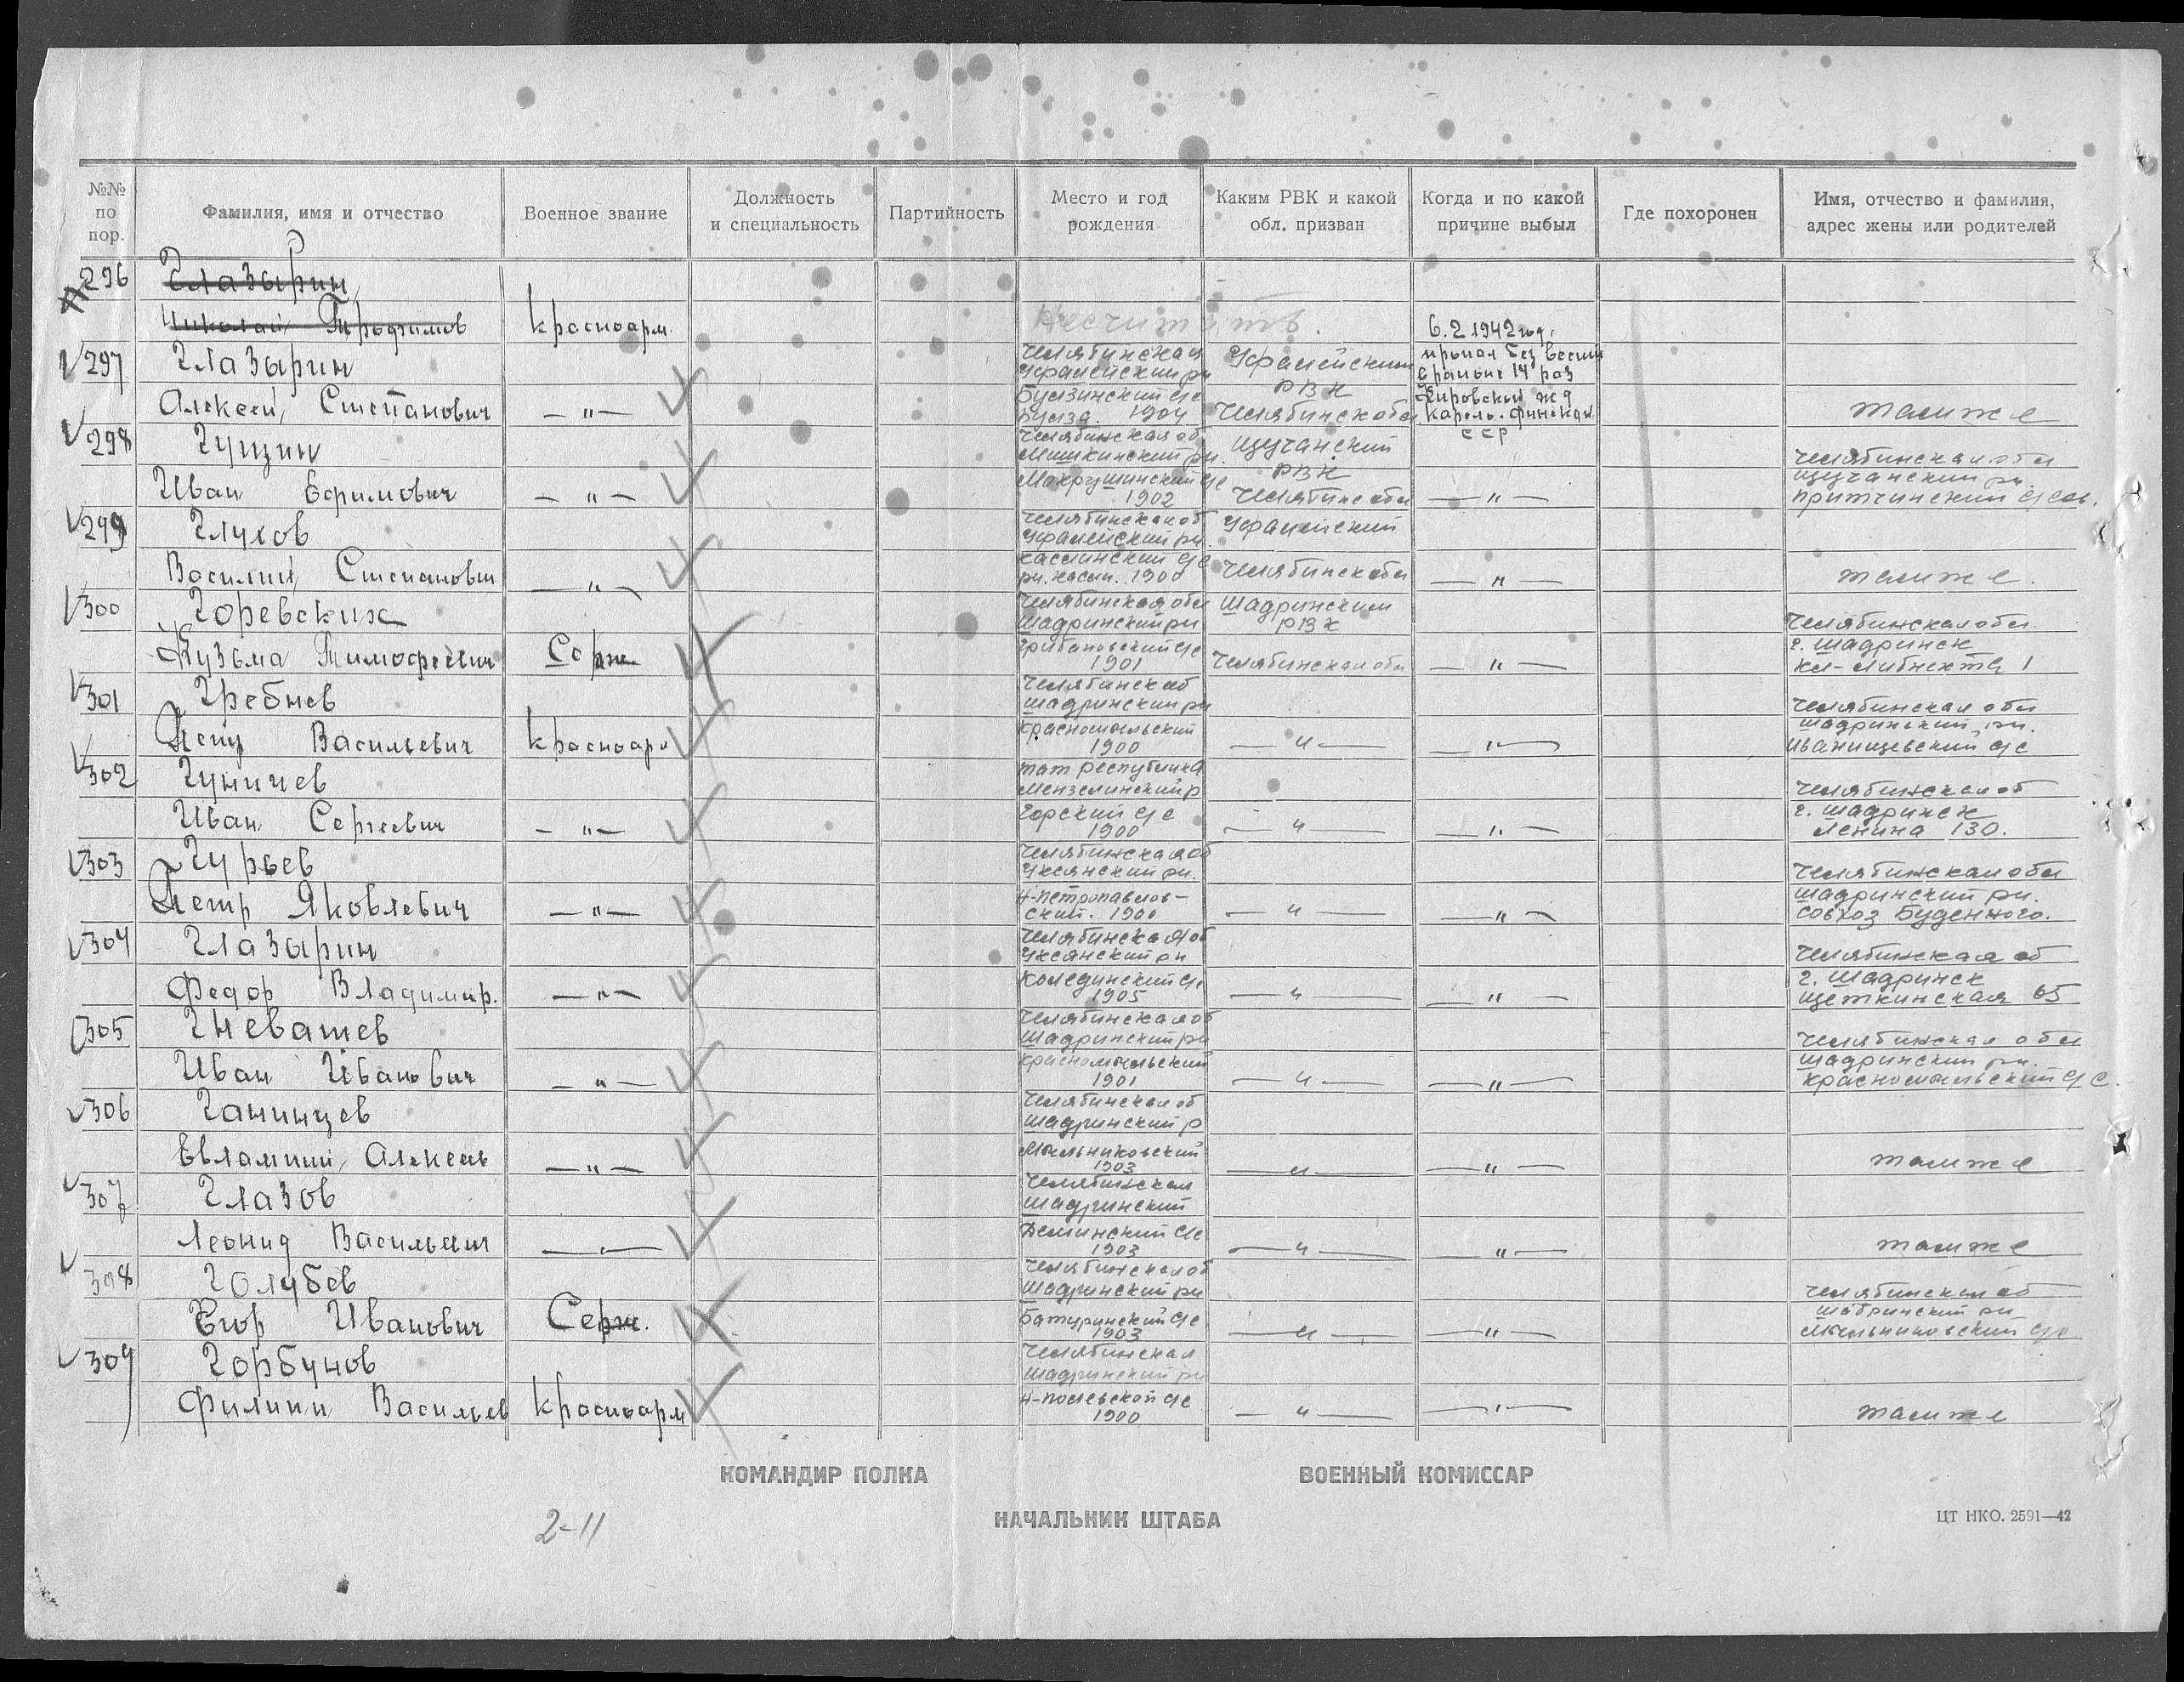 №№ по пор.
Фамилия, имя и отчество
Военное звание
Должность и специальность
Партийность
Место и год рождения
Каким РВК и какой обл. призван
Когда и по какой причине выбыл
Где похоронен
Имя, отчество и фамилия, адрес жены или родителей
296 Глазырин
Николай Трофимов красноарм
6.2 1942 год.
297 Глазырин Челябинская Уфалейский рн Уфалейский РВК пропал без вести в районе 14 раз
Алексей Степанович — " — 1904 Челябинск обл Кировской жд Карело-Финская ССР там же
298 Гущин Челябинская об Мишкинский рн. Щучанский РВК
Иван Ефимович — " — Мокрушинский с/с 1902 Челябинс обл — " — Челябинская обл Щучанский рн.
299 Глухов Челябинская об Уфалейский рн. Уфалейский
Василий Степанович — " — Каслинский с/с 1900 Челябинск обл — " — там же.
300 Горевских Челябинская обл Шадринский рн Шадринский РВК
Кузьма Тимофеевич Серж 1901 Челябинская обл — " — Челябинская обл. г. Шадринск 1
301 Гребнев Челябинск об Шадринский рн
Петр Васильевич красноарм Красномыльский 1900 — " — — " — Челябинская обл Шадринский рн. Иванищевский с/с
302 Гуничев Тат республика Мензелинский р
Иван Сергеевич — " — Горский с/с 1900 — " — — " — Челябинская об г. Шадринск Ленина 130.
303 Гурьев Челябинская об Уксянский рн.
Петр Яковлевич — " — Н-Петропавлов- ский. 1900 — " — — " — Челябинская обл Шадринский рн. совхоз Буденного.
304 Глазырин Челябинская об Уксянский рн
Федор Владимир. — " — 1905 — " — — " — Челябинская об г. Шадринск Щеткинская 65
305 Гневашев Челябинская об Шадринский рн
Иван Иванович — " — Красномыльский 1901 — " — — " — Челябинская обл Шадринский рн. Красномыльский с/с.
306 Ганинцев Челябинская об Шадринский р
Евлампий Алексеев — " — Мыльниковский 1903 — " — — " — там же
307 Глазов Челябинская Шадринский
Леонид Васильевич — " — Деминский с/с 1903 — " — — " — там же
308 Голубев Челябинская об Шадринский рн
Егор Иванович Серж. Батуринский с/с 1903 — " — — " — Челябинская об Шадринский рн Мыльниковский с/с
309 Горбунов Челябинская Шадринский рн
Филипп Васильев красноарм 1900 — " — — " — там же
КОМАНДИР ПОЛКА
ВОЕННЫЙ КОМИССАР
НАЧАЛЬНИК ШТАБА
2-11
ЦТ НКО. 2591—42